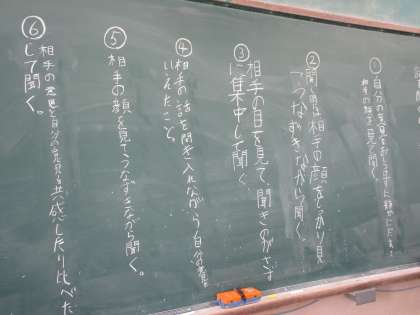 ①自分の意見を
相手の顔を見て聞く
②聞く時は相手の顔をしっかり見
てうなずきながら聞く。
③相手の目を見て、聞きのがさず
に集中して聞く
④相手の話を聞き入れながら自分の意見
いえたこと。
⑤相手の顔を見てうなずきながら聞く。
⑥相手の意見と自分の意見を共感したり比べた
して聞く。